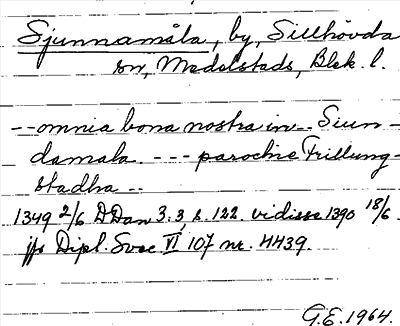 Sjunnamåla, by, Sillhövda
sn, Medelstads, Blek. l.
--omnia bona nostra in-- Siun-
damala. --- parochie Frillung-
stadha --
1349 2/6 DDan 3.3 s. 122. vidisse 1390 18/6.
jfr Dipl. Svec VI, 107 nr. 4439.
G.E. 1964.